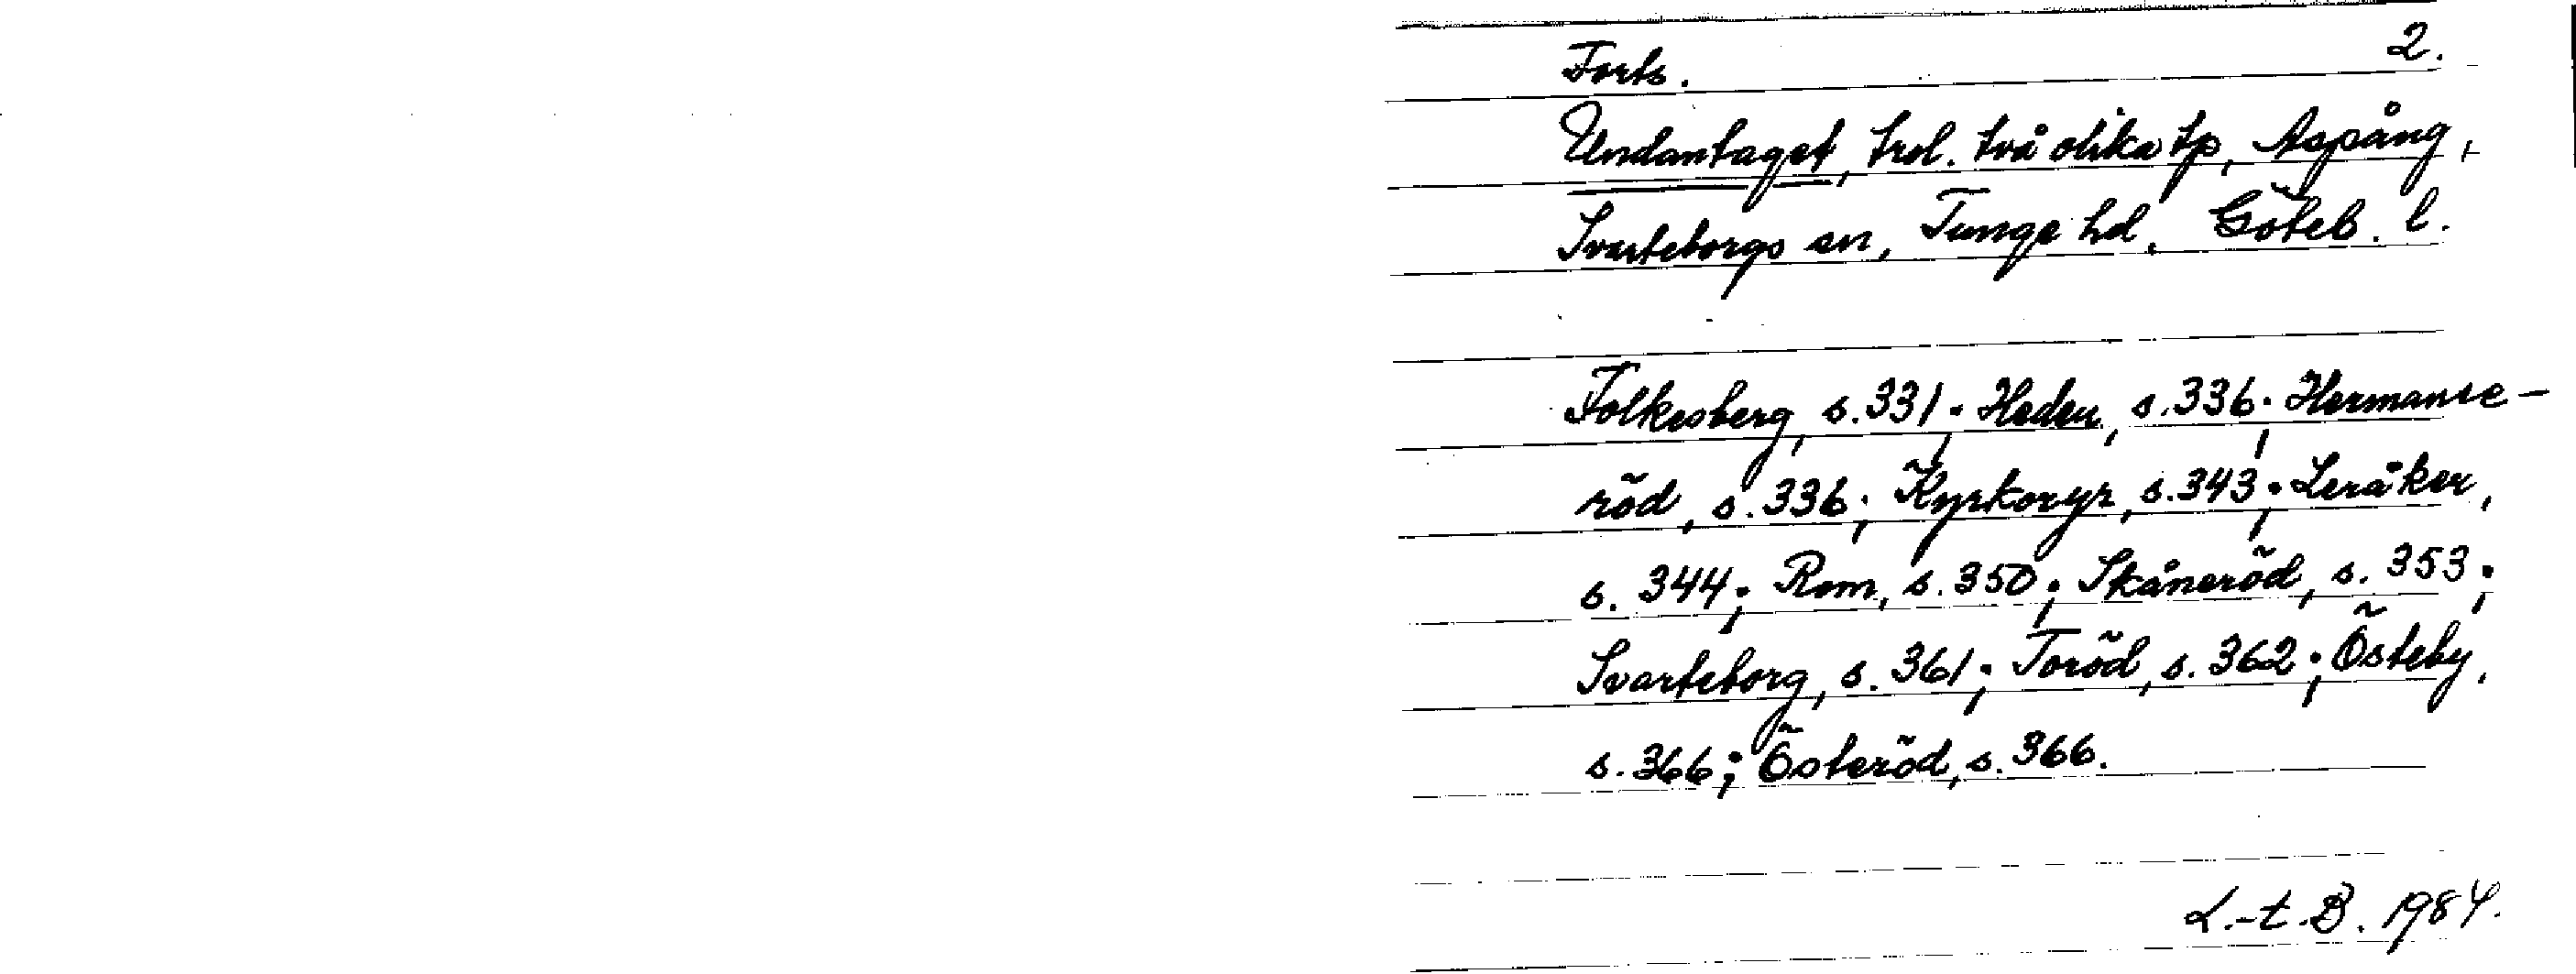 Forts. 2.
Undantaget, trol. två olika tp, Aspång,
Svarteborgs sn, Tunge hd, Göteb. l.
Folkesberg, s. 331; Heden, s. 336; Hermanse-
röd, s. 336; Kyrkoryr, s. 343; Leråker,
s. 344; Rom, s. 350; Skåneröd, s. 353;
Svarteborg, s. 361; Toröd, s. 362; Östeby,
s. 366; Österöd, s. 366.
L.-t. B. 1984.